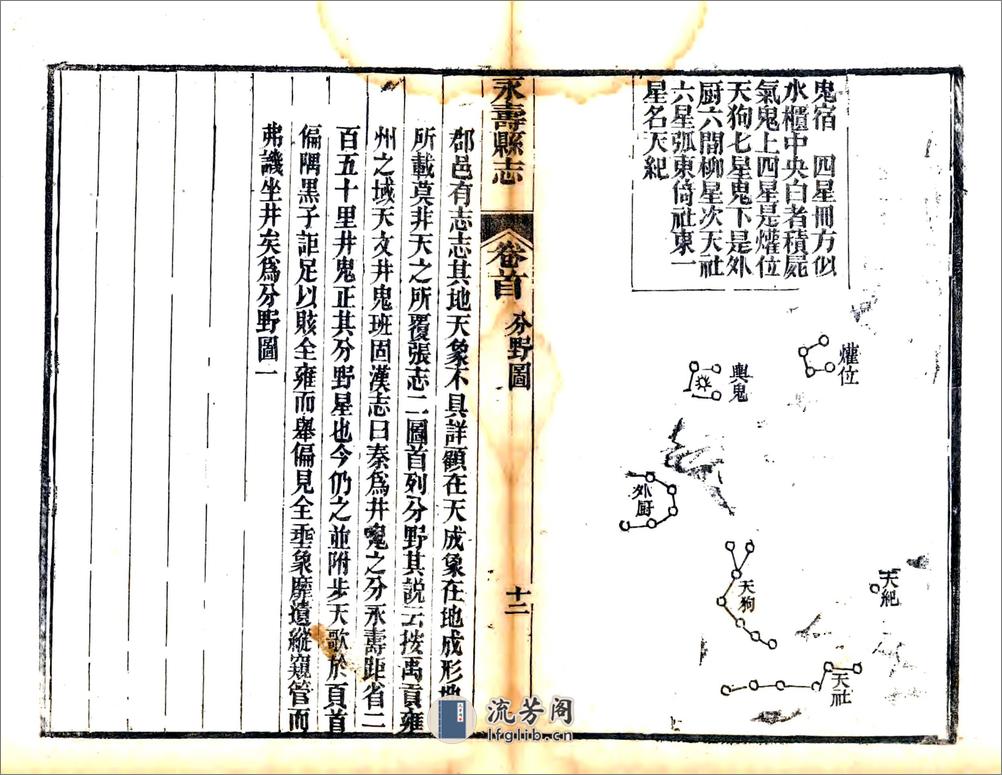 鬼宿　四星冊方似
水櫃中央白者積屍
氣鬼上四星是爟位
天狗七星鬼下是外
厨六間柳星次天社
六星弧東倚社東一
星名天紀
爟位
輿鬼
外厨
天狗
天紀
天社
永壽縣志
卷首
分野圖
十二
郡邑有志志其地天象不具詳顧在天成象在地成形地
所載莫非天之所覆張志二圖首列分野其說云按禹貢雍
州之域天文井鬼班固漢志曰秦爲井鬼之分永壽距省二
百五十里井鬼正其分野星也今仍之並附步天歌於頁首
偏隅黑子詎足以賅全雍而舉偏見全垂象靡遺縱窺管而
弗譏坐井矣爲分野圖一
流芳阁
lfglib.cn